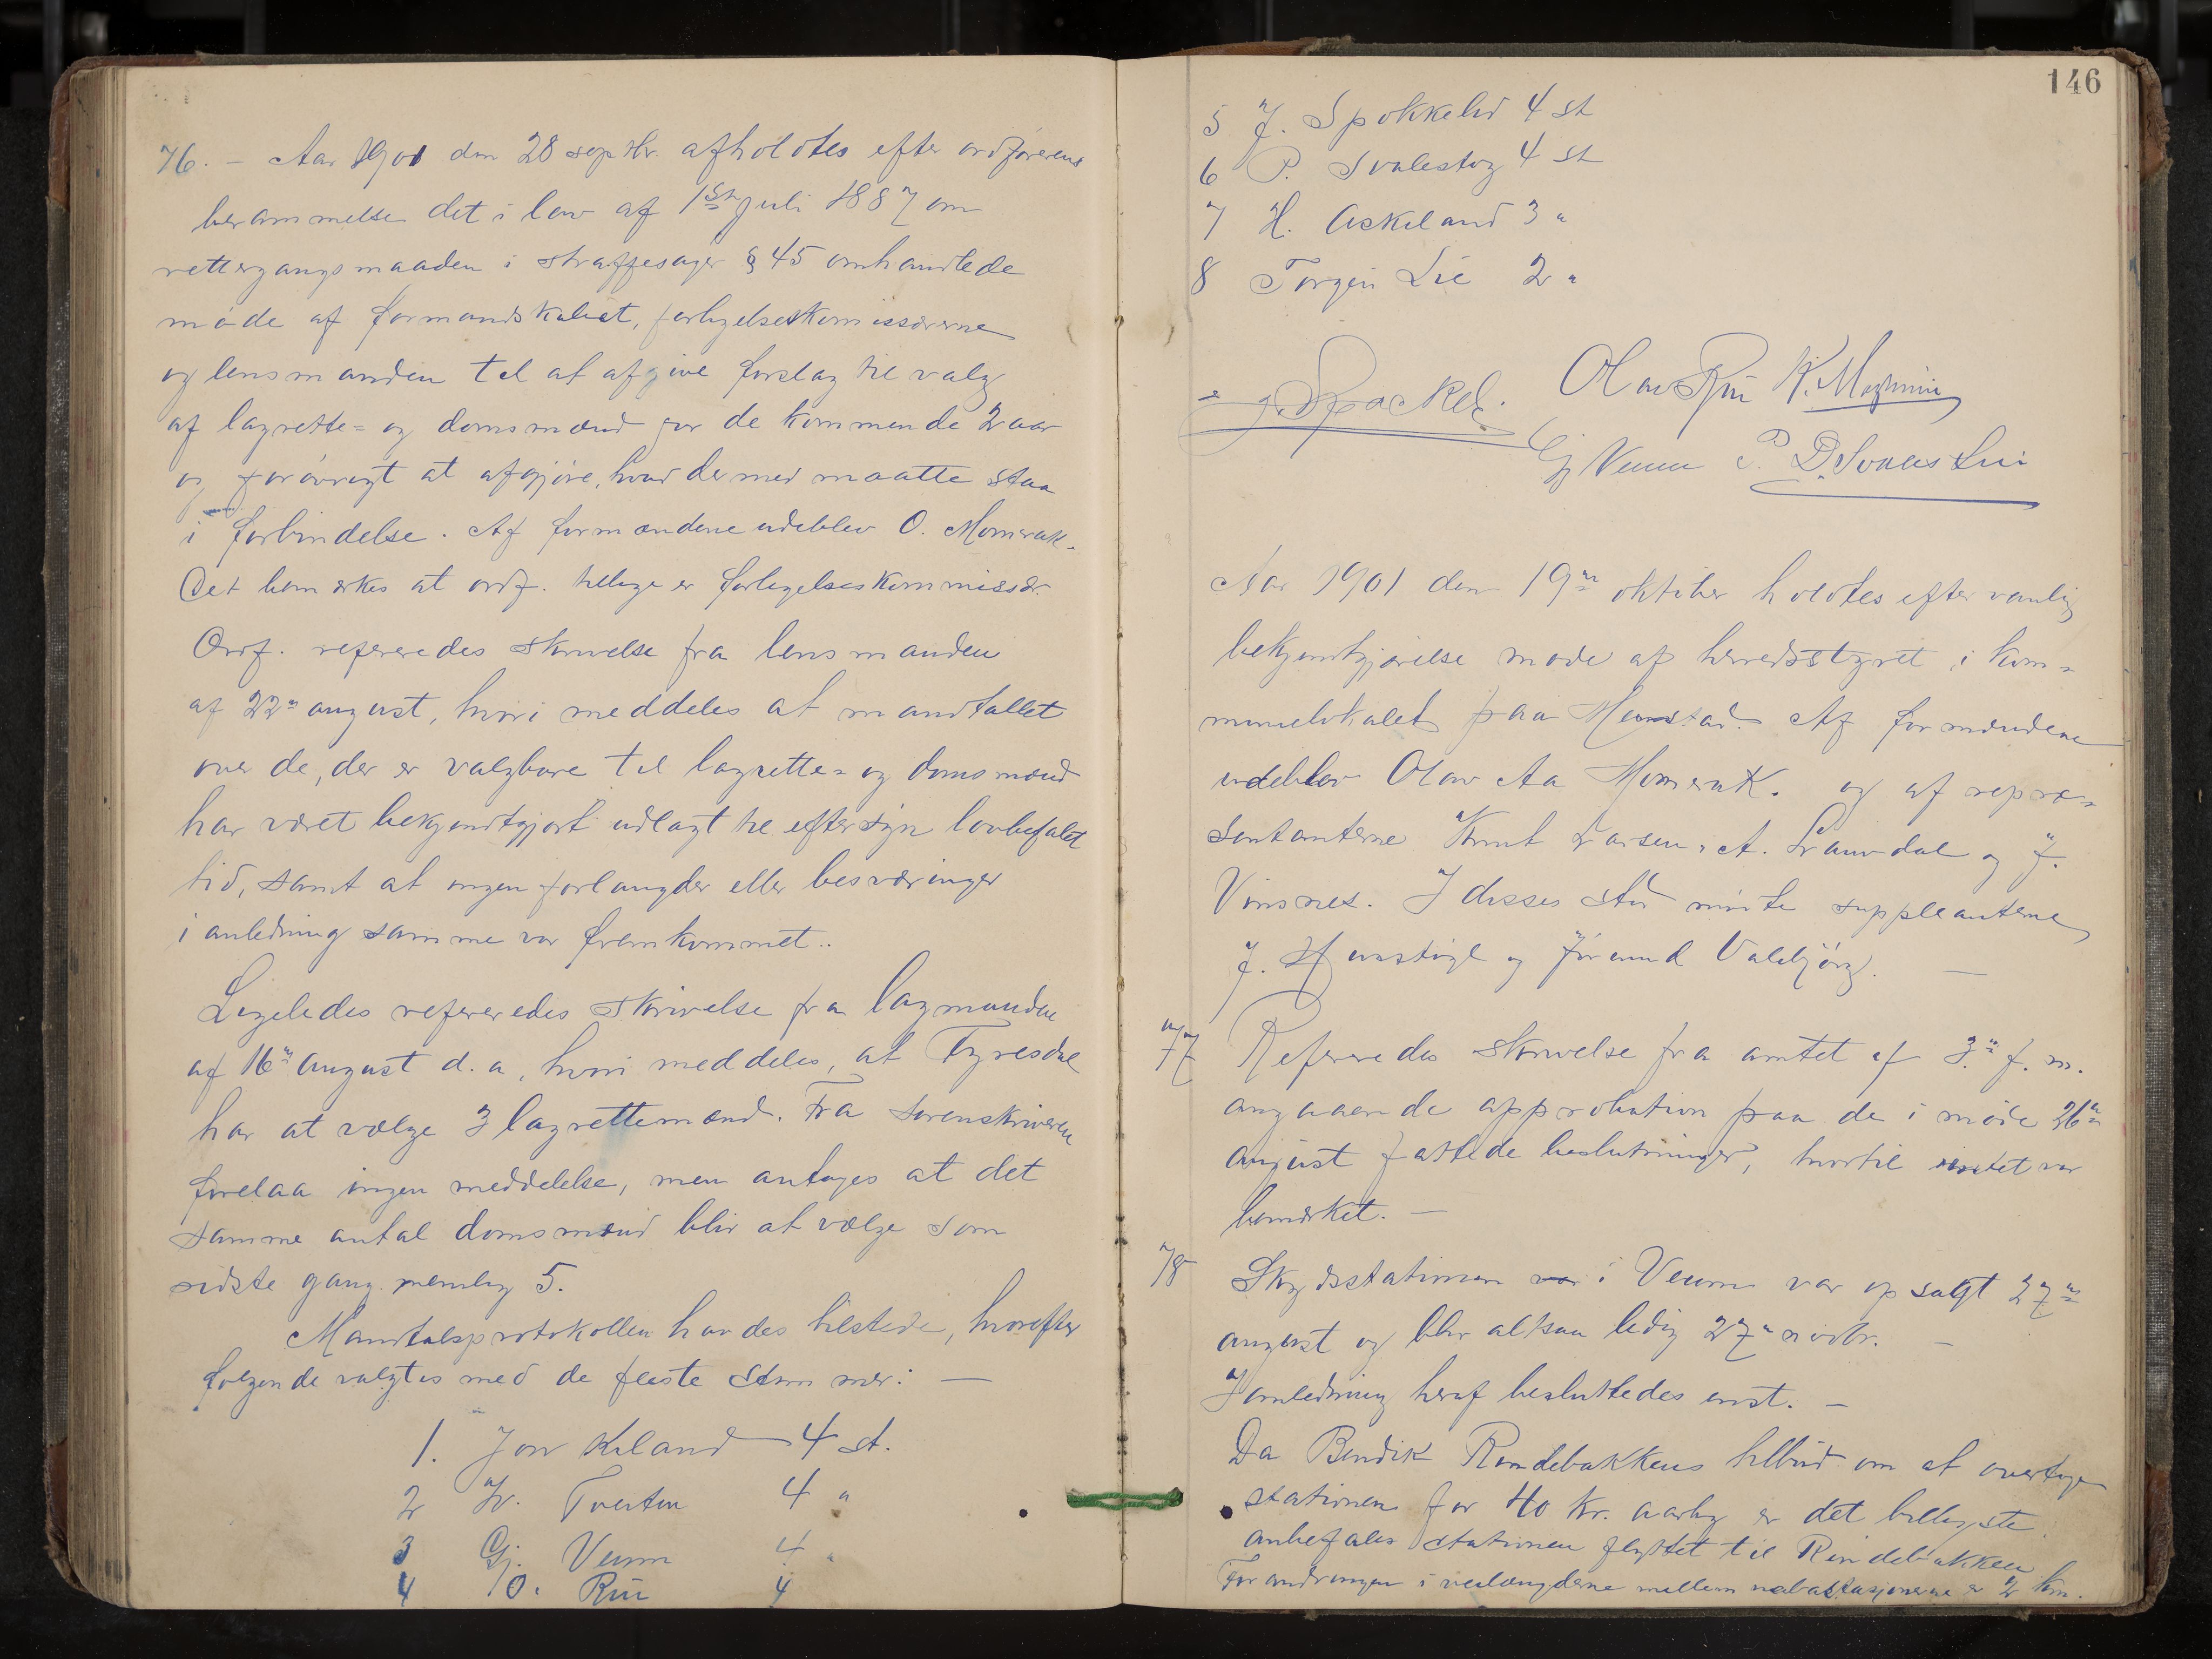 76. – Aar 1901 den 28 septbr. afholdtes efter ordførerens
berammelse det i lov af 1ste juli 1887 om
rettergangsmaaden i straffesager § 45 omhandlede
møde af formandskabet, forligelseskomissærerne
og lensmanden til at afgive forslag til valg
af lagrette= og domsmænd for de kommende 2 aar
og forøvrigt at afgjøre, hvad dermed maatte staa
i forbindelse. Af formændene udeblev O. Momrak.
Det bemærkes at ordf. tillige er forligelseskommissær.
Ordf. refereredes skrivelse fra lensmanden
af 22n august, hvori meddeles at mandtallet
over de, der er valgbare til lagrette= og domsmænd
har været bekjendtgjort udlagt til eftersyn lovbefalet
tid, samt at ingen forlangder eller besværinger
i anledning samme var fremkommet..
Ligeledes refereredes skrivelse fra lagmanden
af 16n august d. a, hvori meddeles, at Tyresdal
har at vælge 3 lagrettemænd. Fra sorenskriveren
forelaa ingen meddelelse, men antages at det
samme antal domsmænd blir at vælge som
sidste gang nemlig 5.
Mandtalsprotokollen havdes tilstede, hvorefter
følgende valgtes med de fleste stemmer: —
1. Jon Kiland 4 st.
2 H. Tveiten 4 "
3 Gj. Veum 4 "
4 O. Riu 4
146
5 J. Spokkelid 4 st
6 P. Svalestog 4 st
7 H. Askeland 3 "
8 Torgei Lie 2 "
J. Spockeli. Olav Riu K.
Gj Veum P. D.
Aar 1901 den 19n oktober holdtes efter vanlig
bekjendtgjørelse møde af herredsstyret i kom=
munelokalet paa Momstad. Af formændene
udeblev Olav Aa Momrak. og af repræ=
sentanterne Knut Larsen, A. Lauvdal og J.
Vinsnes. I disses sted mødte suppleanterne
J. og Jørund Valebjørg. —
77 Refereredes skrivelse fra amtet af 3.n f. m.
angaaende approbation paa de i møde 26n
august fattede beslutninger, hvortil intet var
bemærket. —
78 Skydsstationen var i Veum var opsagt 27n
august og blir altsaa ledig 27n novbr. —
I anledning heraf besluttedes enst. —
Da Bendik Rindebakkens tilbud om at overtage
stationen for 40 kr. aarlig er det billigste
anbefales stationen flyttet til Rindebakken
Forandringen i veilængderne mellem nabostasjonerne er 2 km.